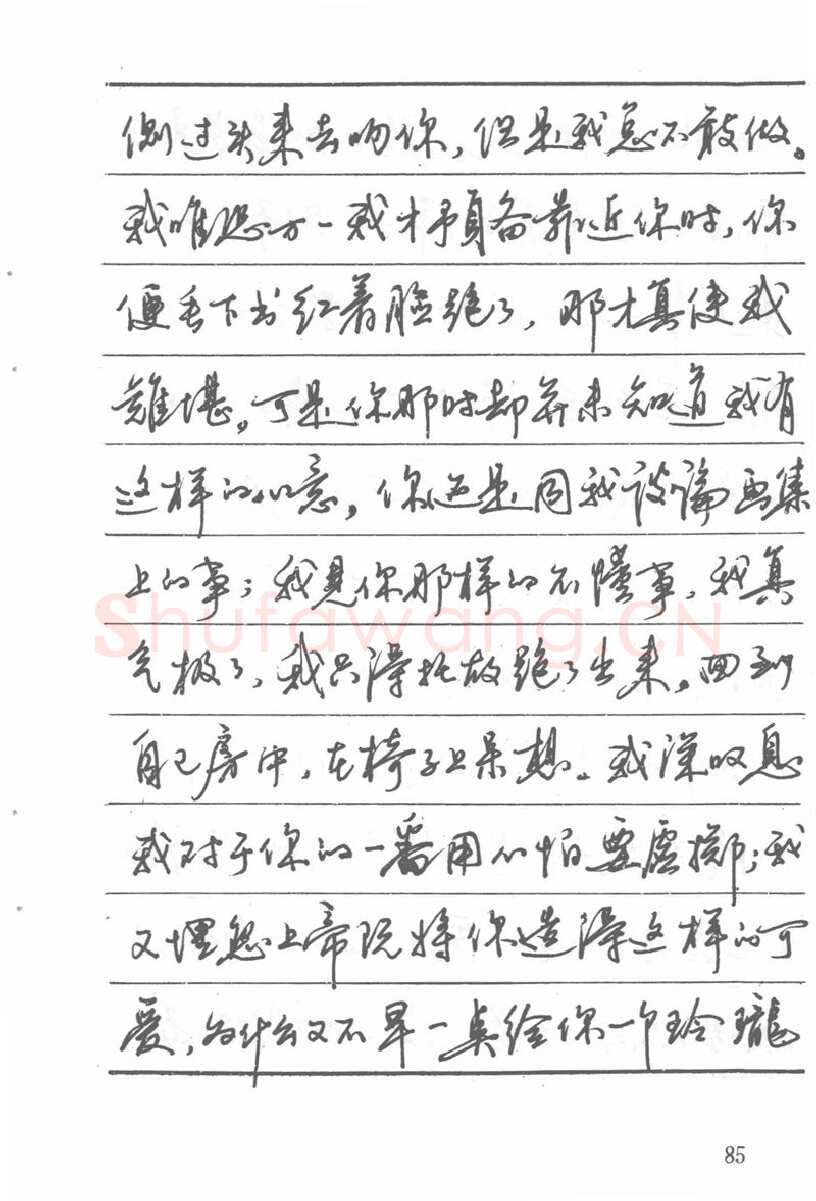 侧过头来去吻你，但是我总不敢做。
我唯恐万一我才预备靠近你时，你
便丢下书红着脸跑了，那才真使我
难堪。可是你那时却并未知道我有
这样的心意，你还是同我谈论画集
上的事；我见你那样的不懂事，我真
气极了，我只得托故跑了出来。回到
自己房中，在椅子上呆想。我深叹息
我对于你的一番用心怕要虚掷；我
又埋怨上帝既将你造得这样的可
爱，为什么又不早一点给你一个玲瓏
Shufawang.CN
85